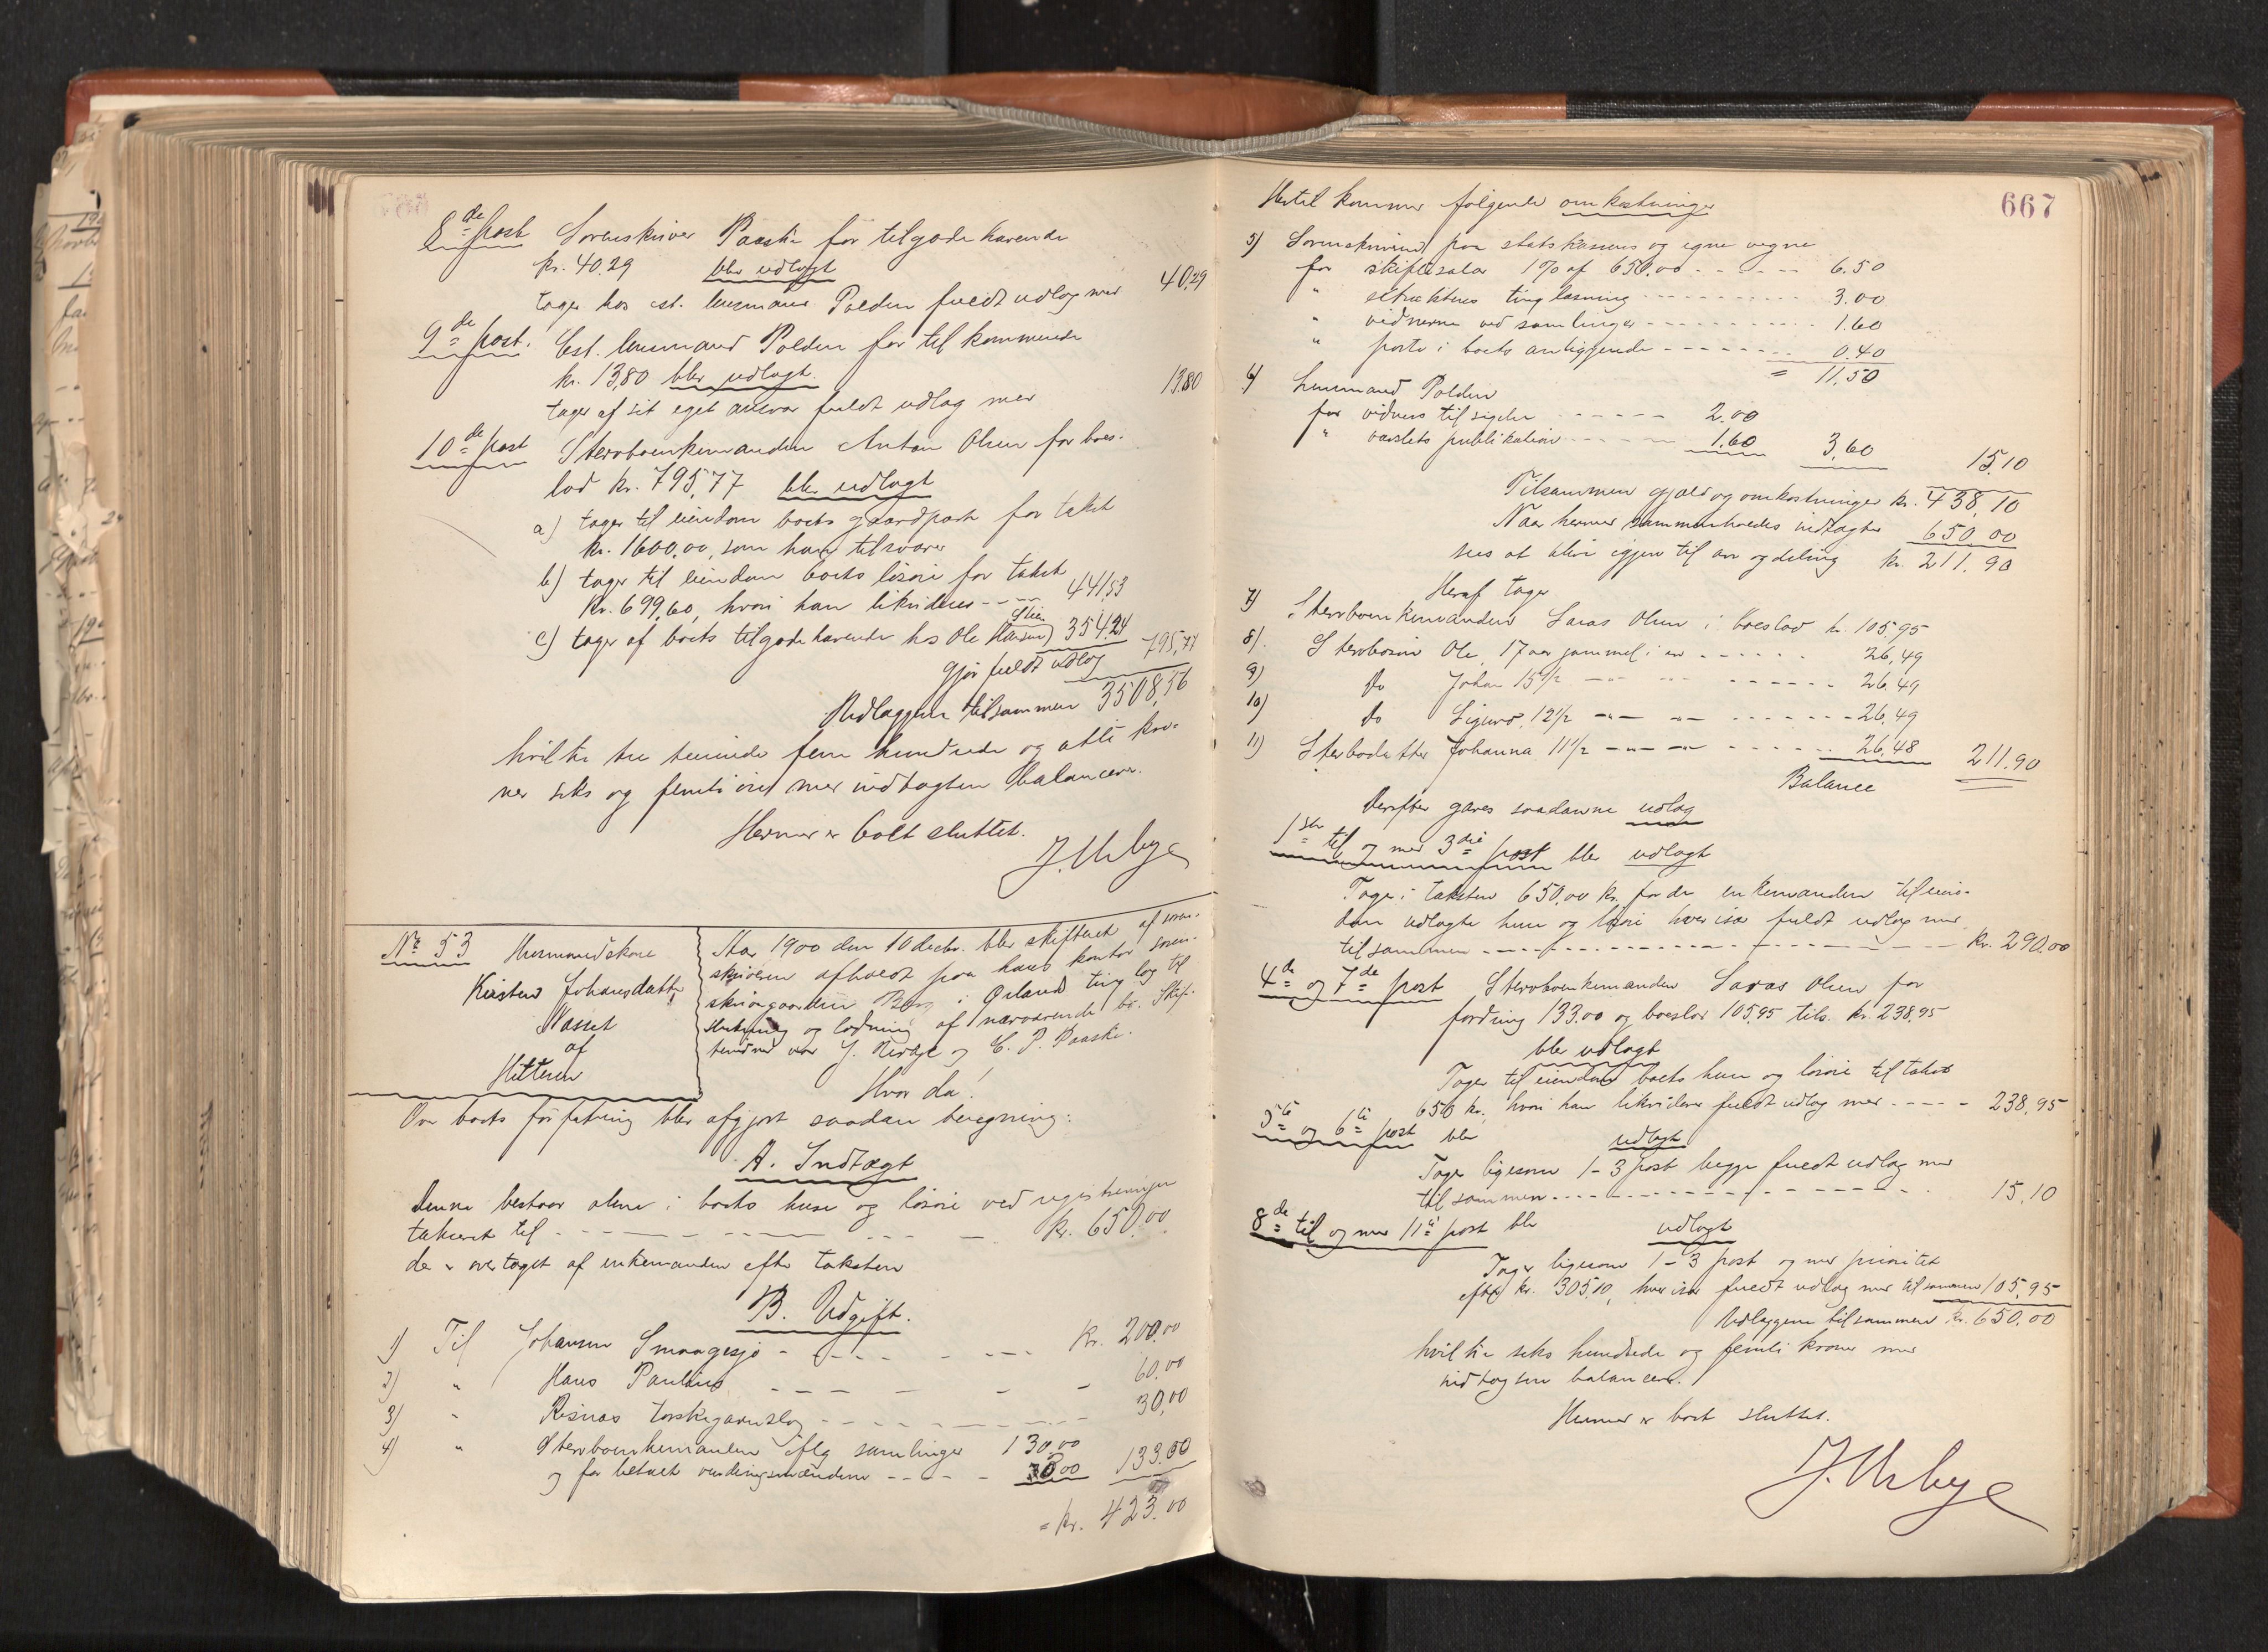 8de post Sorenskriver Paaske for tilgodehavende
kr. 40.29 blev udlagt
tager hos cst. lensmand Polden fuldt udlæg med 40,29
9de post. Cst. lensmand Polden for tilkommende
kr. 13,80 blev udlagt.
tager af sit eget ansvar fuldt udlæg med 13,80
10de post Stervboenkemanden Anton Olsen for boes-
lod kr. 795,77 blev udlagt
a) tager til eiendom boets gaardpart for takst
kr. 1600,00, som han tilsvarer
b) tager til eiendom boets løsøre for takst
kr. 699,60, hvori han likvideres - - - 441,53
c) tager af boets tilgodehavende hos Ole Hansen 354,24
gjør fuldt udlæg 795,77
Udlæggene tilsammen 3508,56
hvilke tre tusinde fem hundrede og otte kro-
ner seks og femti øre med indtægten balancerer.
Hermed er boet sluttet.
J. Urbye
No 53 Husmandskone
Kirsten Johansdatter
Næsset
af
Hitteren
Aar 1900 den 10 decbr. blev skifteret af soren-
skriveren afholdt paa hans kontor soren-
skrivergaarden i Ørland tinglag til
slutning og lodning af nærværende bo. Skif-
tevidner var J. og C. P. Paaske.
Hvor da!
Over boets forfatning blev afgjort saadan beregning:
A. Indtægt
Denne bestaar alene i boets huse og løsøre ved registreringen
takseret til - - - - - - kr. 650,00
der er overtaget af enkemanden efter taksten
B. Udgift.
1) Til Johansen Smaagesjø - - - - kr. 200.00
2) " Hans Paulsen - - - - - 60,00
3) " Risnæs torskegarnslag - - - - - 30,00
4) " Stervboenkemanden iflg samlinger 130,00
og for betalt vurderingsmændene - - - - 3,00 133.00
= kr. 423.00
667
Hertil kommer følgende omkostninger
5) Sorenskriveren paa statskassens og egne vegne
for skiftesalær 1% af 650,00 - - - - - 6.50
" tinglæsning - - - - - - - - 3.00
" vidnerne ved samlinger - - - - - - - - 1.60
" porto i boets anliggende - - - - - - - 0.40
= 11,50
6) Lensmand Polden
for vidners tilsigelse - - - - - - 2.00
" varslets publikation - - - - - 1.60 3,60 15,10
Tilsammen gjæld og omkostninger kr. 438,10
Naar hermed sammenholdes indtægten 650,00
sees at blive igjen til arv og deling kr. 211,90
Heraf tager
7) Stervboenkemanden Saras Olsen i boeslod kr. 105,95
8). Sterbosøn Ole, 17 aar gammel i arv - - - - - - 26,49
9) do Johan 15½ -"- -"- - - - - - - 26,49
10) do Sigurd, 12½ -"- -"- - - - - - - 26,49
11) Sterbodatter Johanna 11½ -"- -"- - - - - - 26,48 211.90
Balance
Derefter gjøres saadanne udlæg
1ste til og med 3die post blev udlagt
Tager i taksten 650,00 kr. for de enkemanden til eien-
dom udlagte huse og løsøre hver især fuldt udlæg med
tilsammen - - - - - - - - - - - - - - kr. 290.00
4de og 7de post Stervboenkemanden Saras Olsen for
fordring 133.00 og boeslod 105,95 tils. kr. 238,95
blev udlagt
Tager til eiendom boets huse og løsøre til takst
650 kr, hvori han likviderer fuldt udlæg med - - - - 238,95
5te og 6te post blev udlagt
Tager ligesom 1-3 post begge fuldt udlæg med
tilsammen - - - - - - - - - - - - - - - 15,10
8de til og med 11te post blev udlagt
Tager ligesom 1-3 post og med prioritet
efter kr. 305,10, hver især fuldt udlæg med tilsammen 105,95
Udlæggene tilsammen kr. 650,00
hvilke seks hundrede og femti kroner med
indtægten balancerer.
Hermed er boet sluttet.
J. Urbye